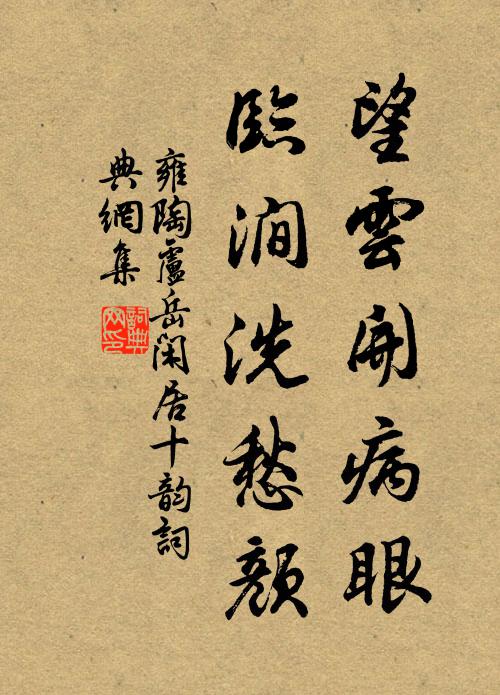 望雲開病眼
臨澗洗愁顏
雍陶盧岳閑居十韵詞
典網集
詞典
网印